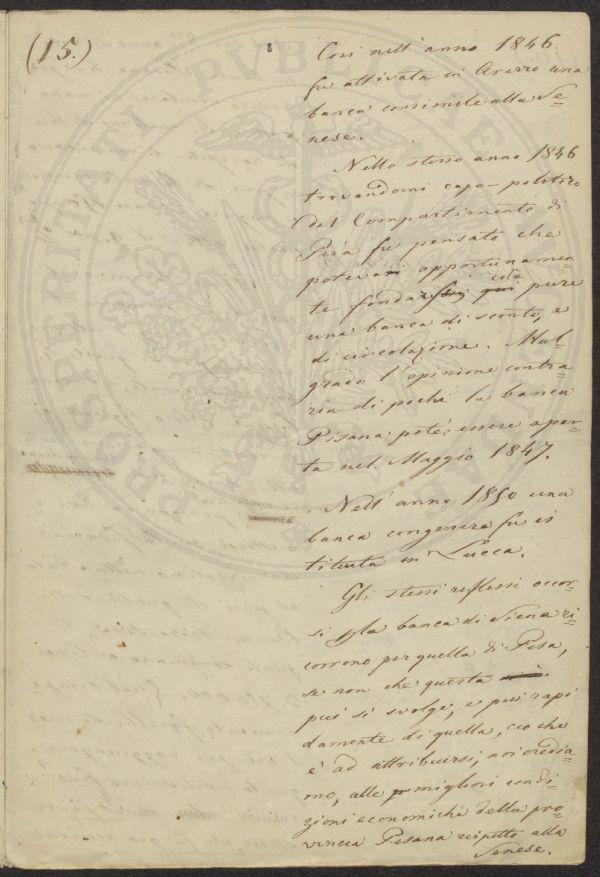 (15.)
Così nell' anno 1846.
fu attivata in Arezzo una
banca consimile alla Se=
nese.
Nello stesso anno 1846
trovandomi capo-politico
del Compartimento di
Pisa fu pensato che
potevasi opportunamen=
te fondar qui colà pure
una banca di sconto, e
di circolazione. Mal=
grado l'opinione contra=
ria di pochi la banca
Pisana potè essere aper=
ta nel Maggio 1847.
Nell' anno 1850 una
banca congenere fu is
tituita in Lucca.
Gli stessi riflessi occor=
si p la banca di Siena ri=
corrono per quella di Pisa,
se non che questa
più si svolge, e più rapi
damente di quella, cio che
è ad attribuirsi, noi credia=
mo, alle migliori condi=
zioni economiche della pro=
vincia Pisana rispetto alla
Senese.
PROSPERITATI PUBLICAE